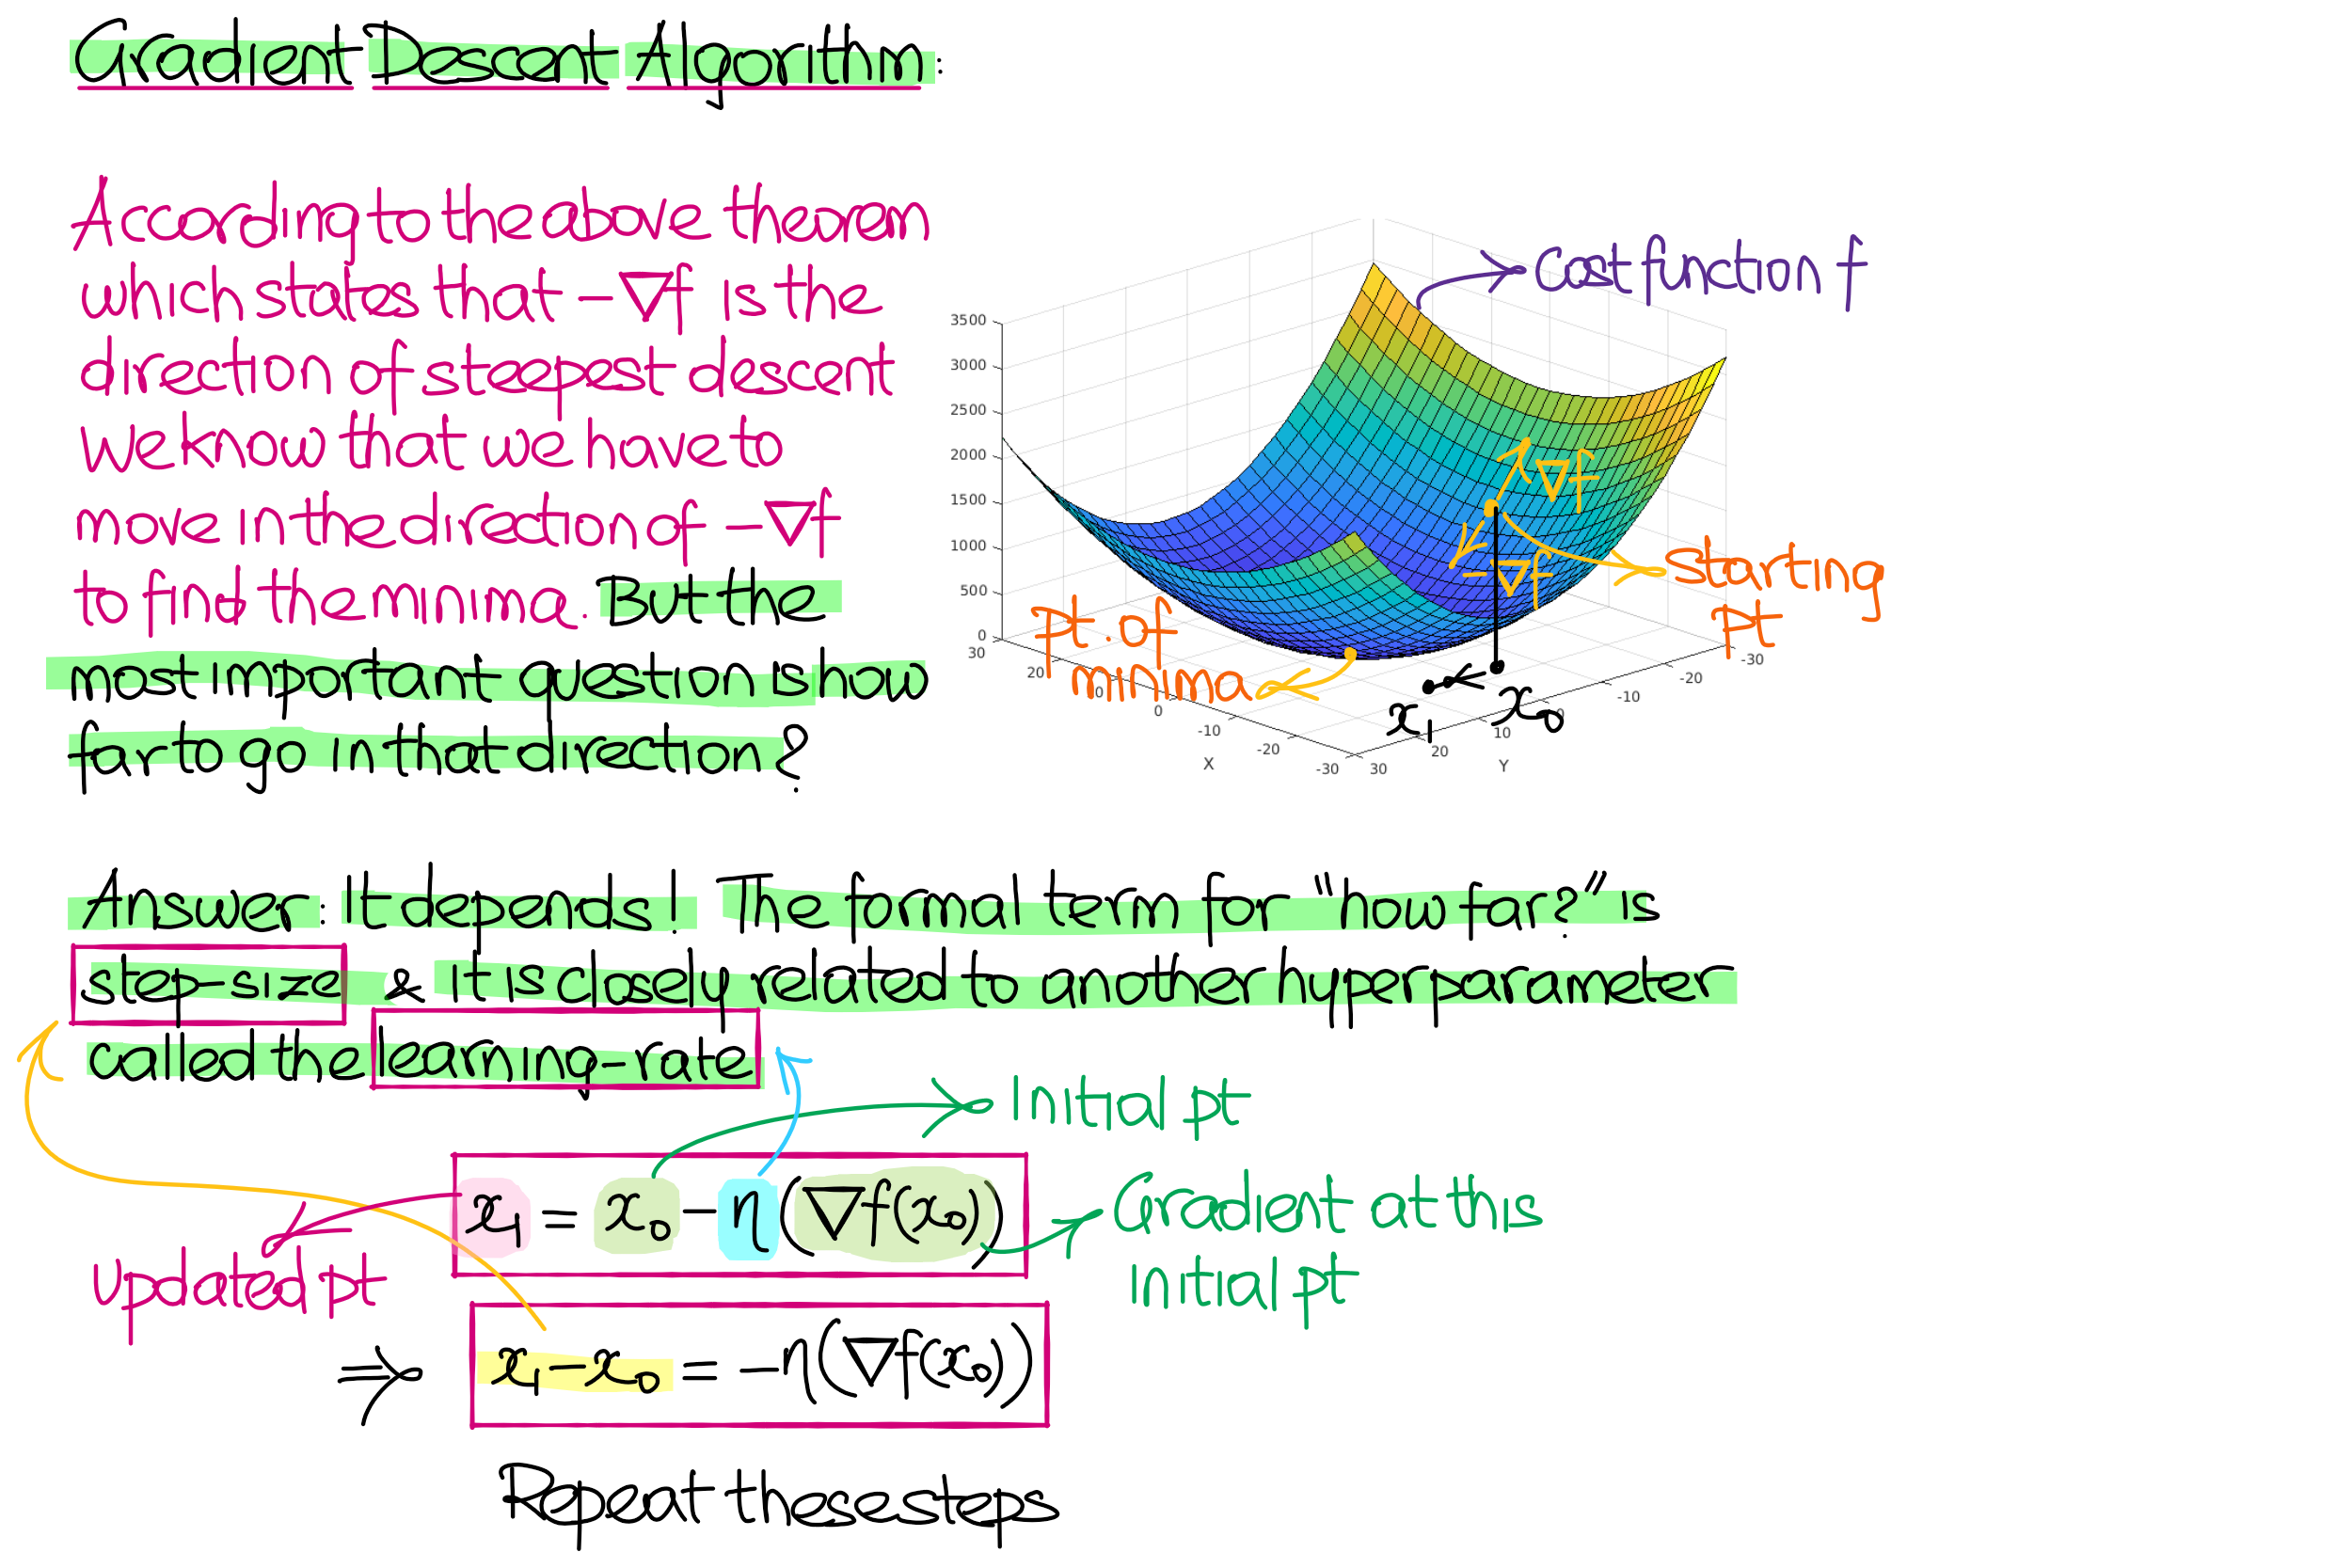 Gradient Descent Algorithm:
According to the above theorem
which states that -∇f is the
direction of steepest descent
We know that we have to
move in the direction of -∇f
to find the minima. But the
most important question is how
far to go in that direction?
Cost function f
3500
3000
2500
2000
1500
1000
500
0
30
20
0
-10
-20
-30
X
30
20
10
0
-10
-20
-30
Y
∇f
-∇f
starting
pt
pt. of
minima
x₁
x₀
Answer: It depends! The formal term for "how far?" is
step-size & it is closely related to another hyperparameter
called the learning-rate
Initial pt
x₁ = x₀ - η(∇f(x₀))
Gradient at this
initial pt
updated pt
⇒ x₁-x₀ = -η(∇f(x₀))
Repeat these steps